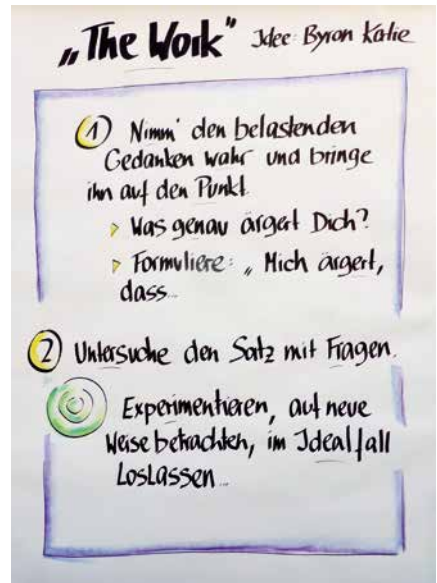 „The Work“ Idee: Byron Katie
① Nimm' den belastenden
Gedanken wahr und bringe
ihn auf den Punkt.
> Was genau ärgert Dich?
> Formuliere: „Mich ärgert,
dass...
② Untersuche den Satz mit Fragen.
Experimentieren, auf neue
Weise betrachten, im Idealfall
Loslassen...